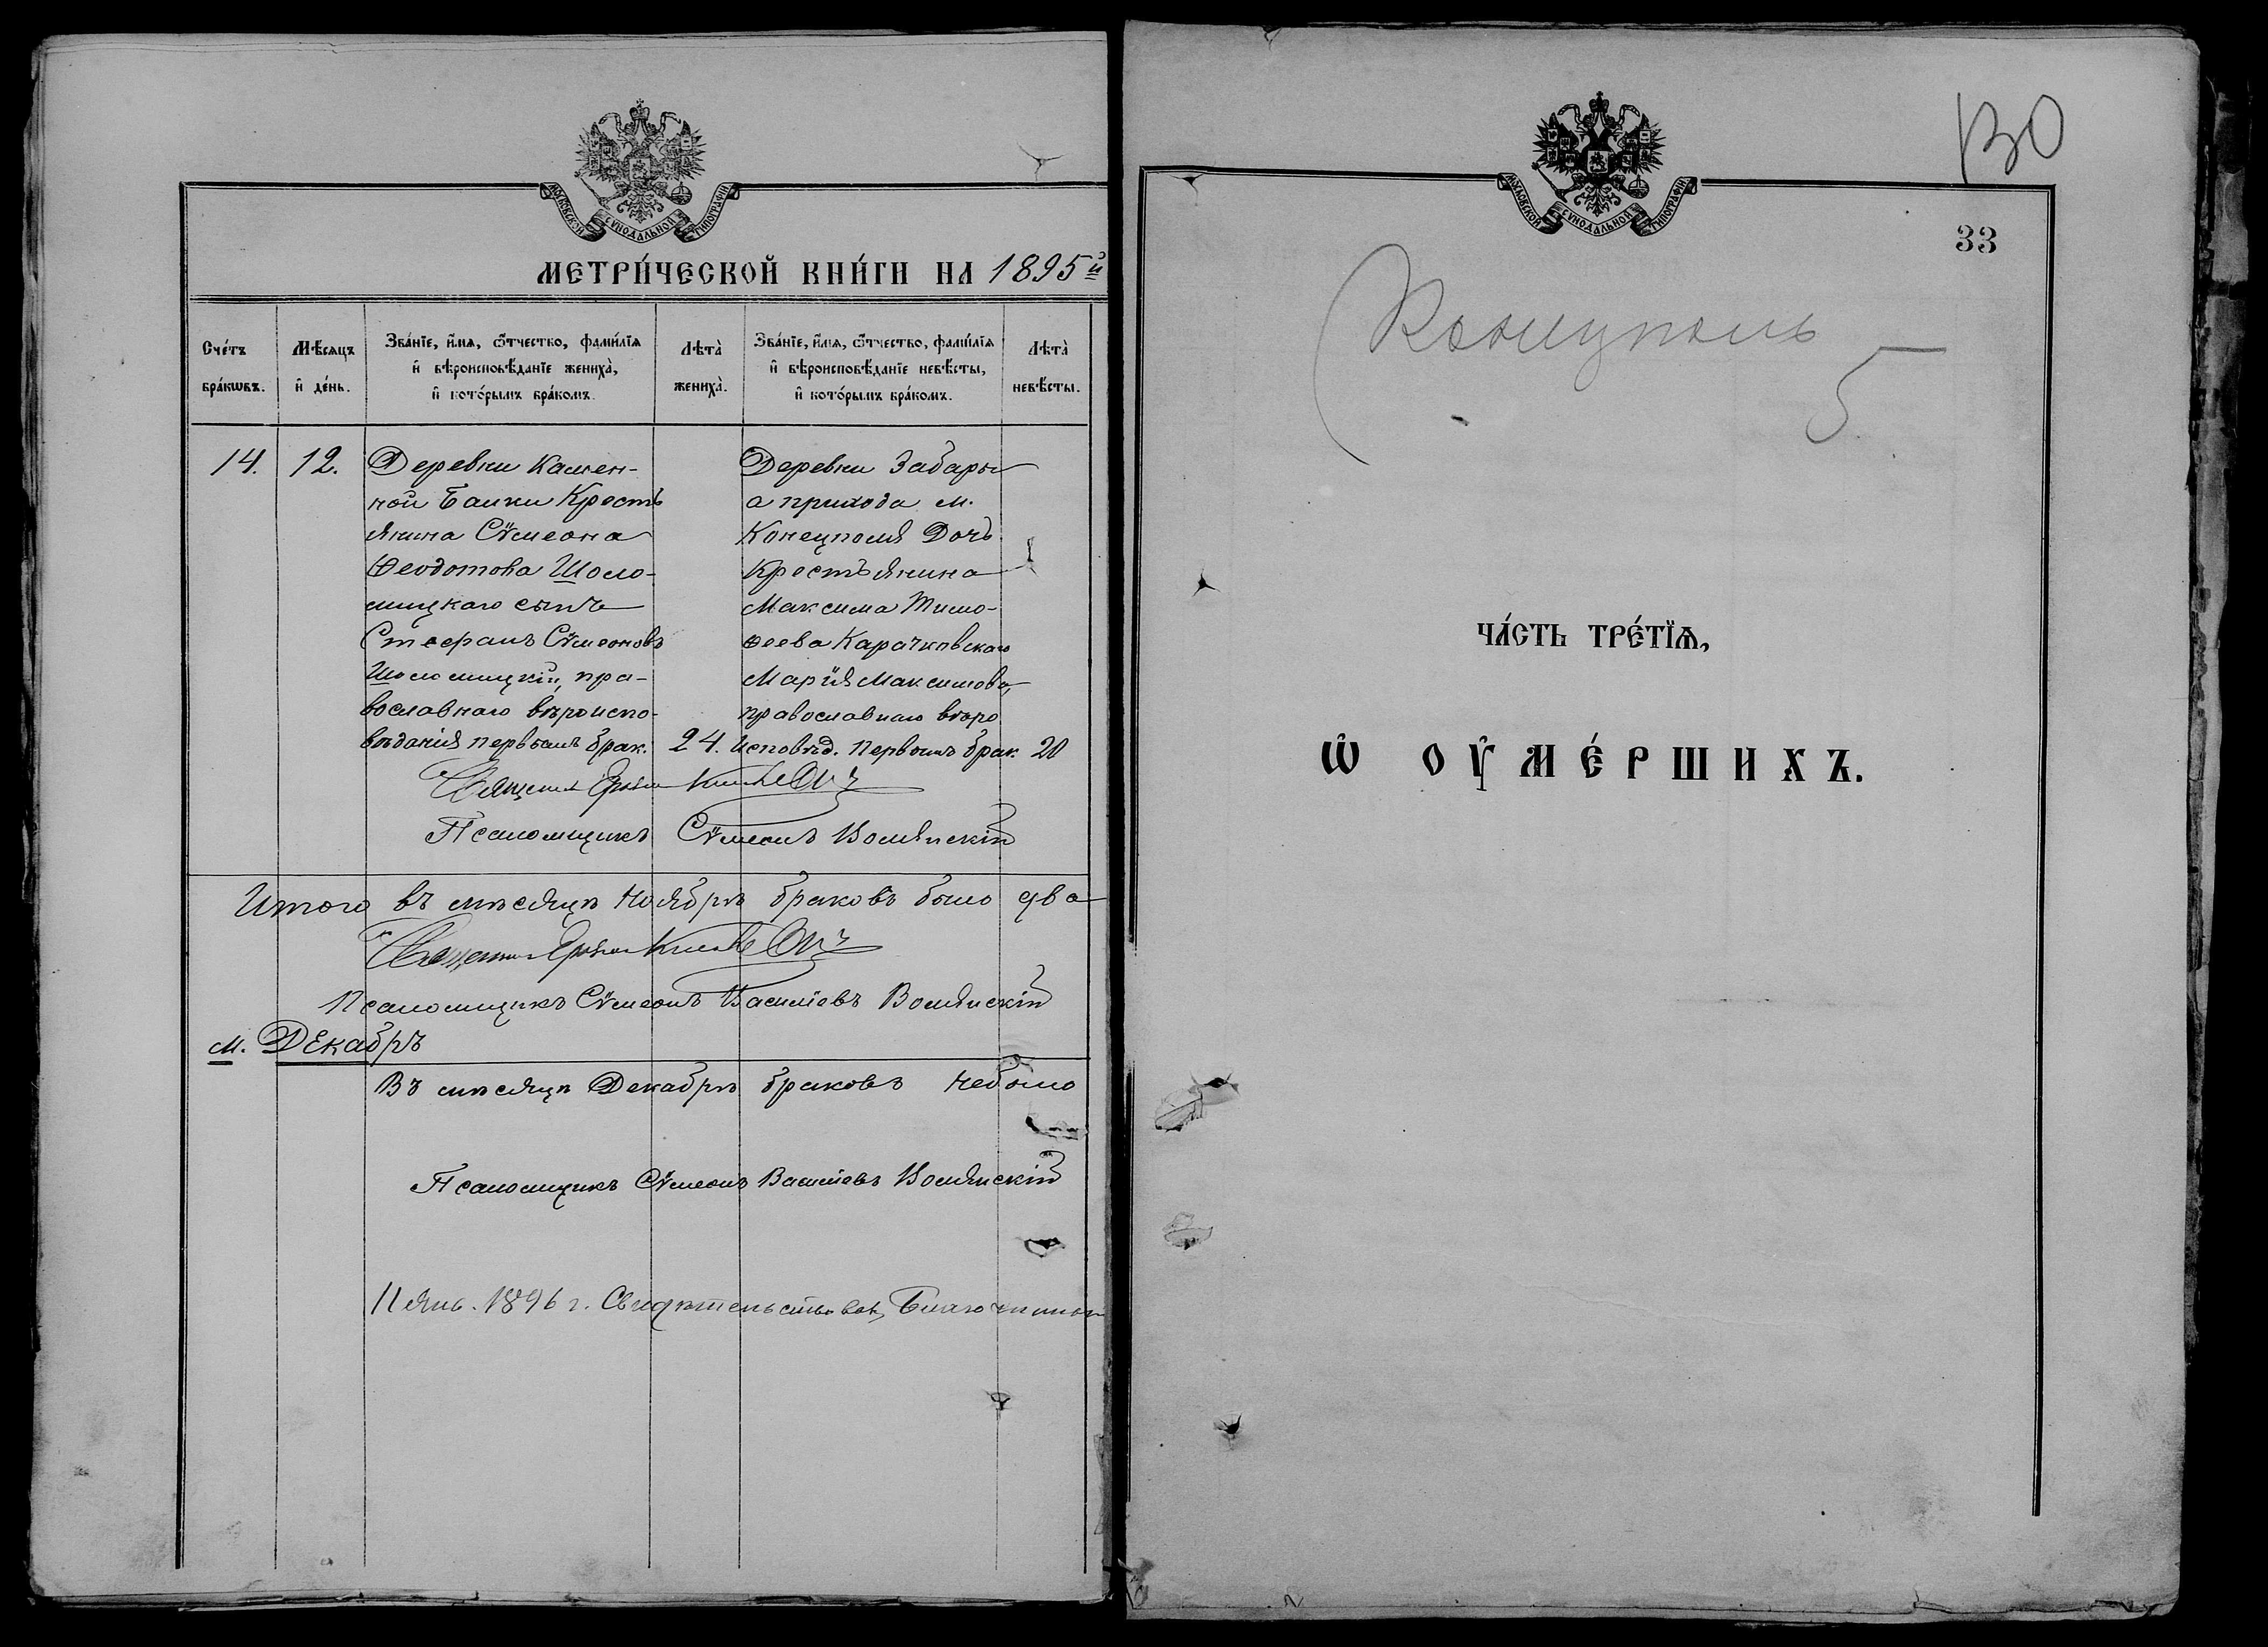 МОСКОВСКОЙ СѴНОДАЛЬНОЙ ТИПОГРАФІИ
МЕТРИ́ЧЕСКОЙ КНИ́ГИ НА 1895й
Сче́тъ бра́кѡвъ.
Мѣ́сяцъ и҆ де́нь.
Зва́нїе, и҆́мя, ѻ҆́тчество, фами́лїя и҆ вѣроисповѣ́данїе жениха̀, и҆ кото́рымъ бра́комъ.
Лѣта̀ жениха̀.
Зва́нїе, и҆́мя, ѻ҆́тчество, фами́лїя и҆ вѣроисповѣ́данїе невѣ́сты, и҆ кото́рымъ бра́комъ.
Лѣта̀ невѣ́сты.
14. 12.
Деревни Камен-
ной Балки Кресть
янина Сѵмеона
Ѳеодотова Шоло-
мицкаго сынъ
Стефанъ Сѵмеоновъ
Шоломицкій, пра-
вославнаго вѣроиспо-
вѣданія первымъ брак. 24.
Деревни Забары
а прихода м.
Конецполя Дочь
Крестьянина
Максима Тимо-
ѳеева Карачковскаго
Марія Максимова,
православнаго вѣро
исповѣд. первымъ брак. 20
Священ
Псаломщикъ Сѵмеонъ Волянскій
Итого въ мѣсяцѣ Ноябрѣ браковъ было два
Священник
Псаломщикъ Сѵмеонъ Василіевъ Волянскій
м. Декабрь
Въ мѣсяцѣ Декабрѣ браковъ небыло
Псаломщикъ Сѵмеонъ Василіевъ Волянскій
11 янв. 1896 г. Свидѣтельствовалъ Благочинный
130
МОСКОВСКОЙ СѴНОДАЛЬНОЙ ТИПОГРАФІИ
33
Конецполь
5
ЧА́СТЬ ТРЕ́ТЇѦ,
Ѡ҆ ОУ҆МЕ́РШИХЪ.